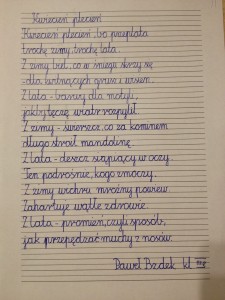 Kwiecień plecień
Kwiecień plecień, bo przeplata
trochę zimy, trochę lata.
Z zimy biel, co w śniegu skrzy się
dla kwitnących grusz i wisien.
Z lata - barwy dla motyli,
jakby tęczę wiatr rozpylił.
Z zimy - świerszcze, co za kominem
długo stroił mandolinę.
Z lata - deszcz siąpiący w oczy.
Ten podrośnie, kogo zmoczy.
Z zimy wichru mroźny powiew
Zahartuje wątłe zdrowie.
Z lata - promień, czyli sposób,
jak przepędzać muchy z nosów.
Paweł Bzdek kl